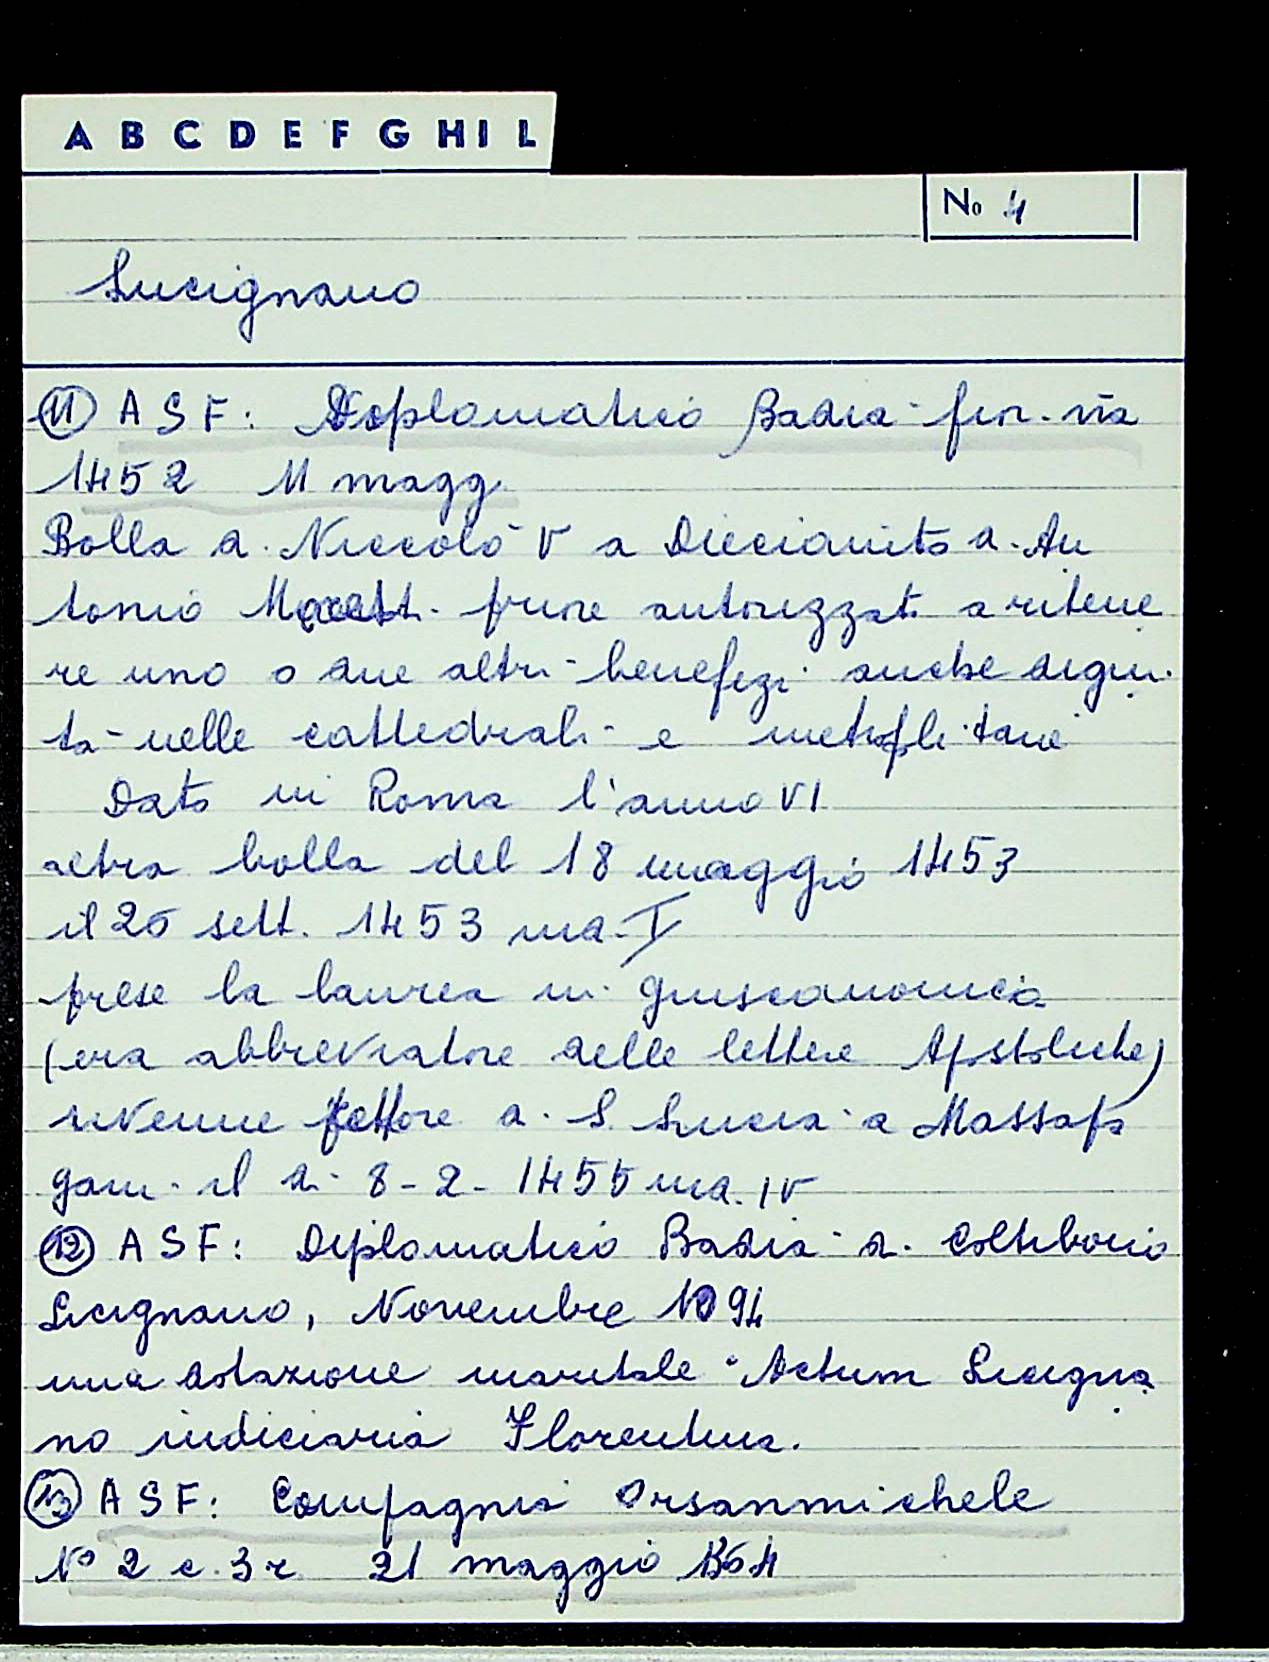 A B C D E F G H I L
No 4
Lucignano
(11) A S F: Diplomatico Badia fior.na
1452 11 magg.
Bolla di Niccolò V a Diecianito di An
tonio priore autorizzato a ritene
re uno o due altri benefizi anche digni
tà nelle cattedrali e metropolitane
Dato in Roma l'anno VI
altra bolla del 18 maggio 1453
il 20 sett. 1453 ind. I
prese la laurea in gius canonico
(era abbreviatore delle lettere Apostoliche)
divenne rettore di S. Lucia a Massapa
gani il dì 8-2-1455 ind. IV
(12) A S F: Diplomatico Badia di Coltibono
Licignano, Novembre 1094
una dotazione maritale "Actum Licigna
no iudiciaria Florentina.
(13) A S F: Compagnia Orsanmichele
N° 2 c. 3r 21 maggio 1354